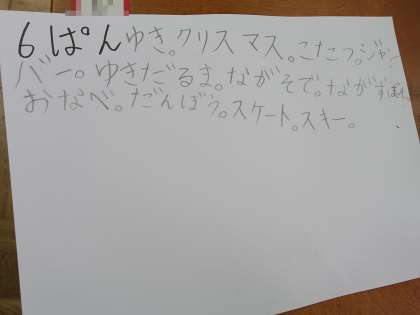 6ぱんゆき。クリスマス。こたつ。ジャン
バー。ゆきだるま。ながそで。ながずぼん
おなべ。だんぼう。スケート。スキー。